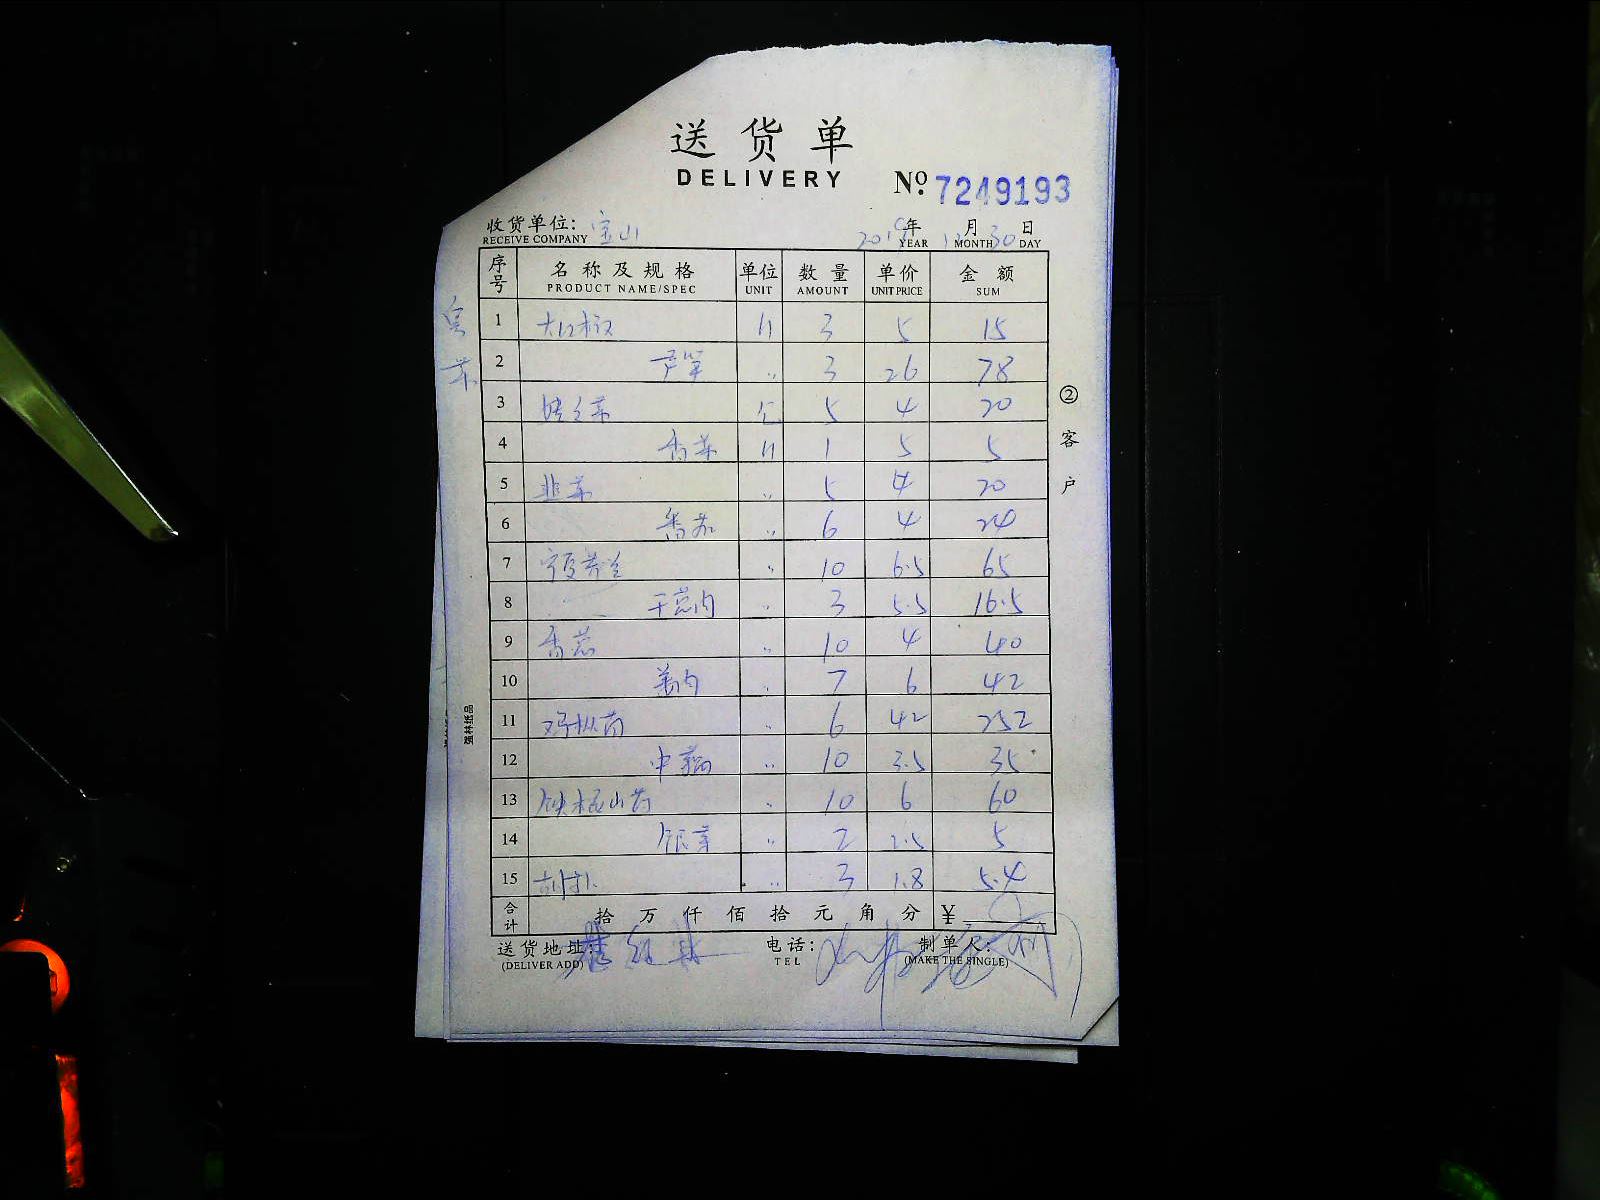 送货单
DELIVERY
№ 7249193
收货单位: 宝山 年 月 30 日
RECEIVE COMPANY YEAR MONTH DAY
序号 名称及规格 单位 数量 单价 金额
PRODUCT NAME/SPEC UNIT AMOUNT UNIT PRICE SUM
1 3 5 15
2 芦笋 〃 3 26 78
3 5 4 20
4 香菜 1 5 5
5 韭菜 〃 5 4 20
6 番茄 〃 6 4 24
7 宁夏芥兰 〃 10 6.5 65
8 干葱肉 〃 3 5.5 16.5
9 香葱 〃 10 4 40
10 姜肉 〃 7 6 42
11 鸡枞菌 〃 6 42 252
12 中藕 〃 10 3.5 35
13 铁棍山药 〃 10 6 60
14 银芽 〃 2 2.5 5
15 〃 3 1.8 5.4
合计 拾 万 仟 佰 拾 元 角 分 ¥
送货地址: 电话: 制单人:
(DELIVER ADD) TEL (MAKE THE SINGLE)
②客户
强林纸品